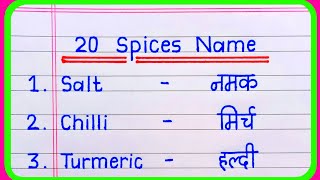 20 Spices Name
1. Salt - नमक
2. Chilli - मिर्च
3. Turmeric - हल्दी